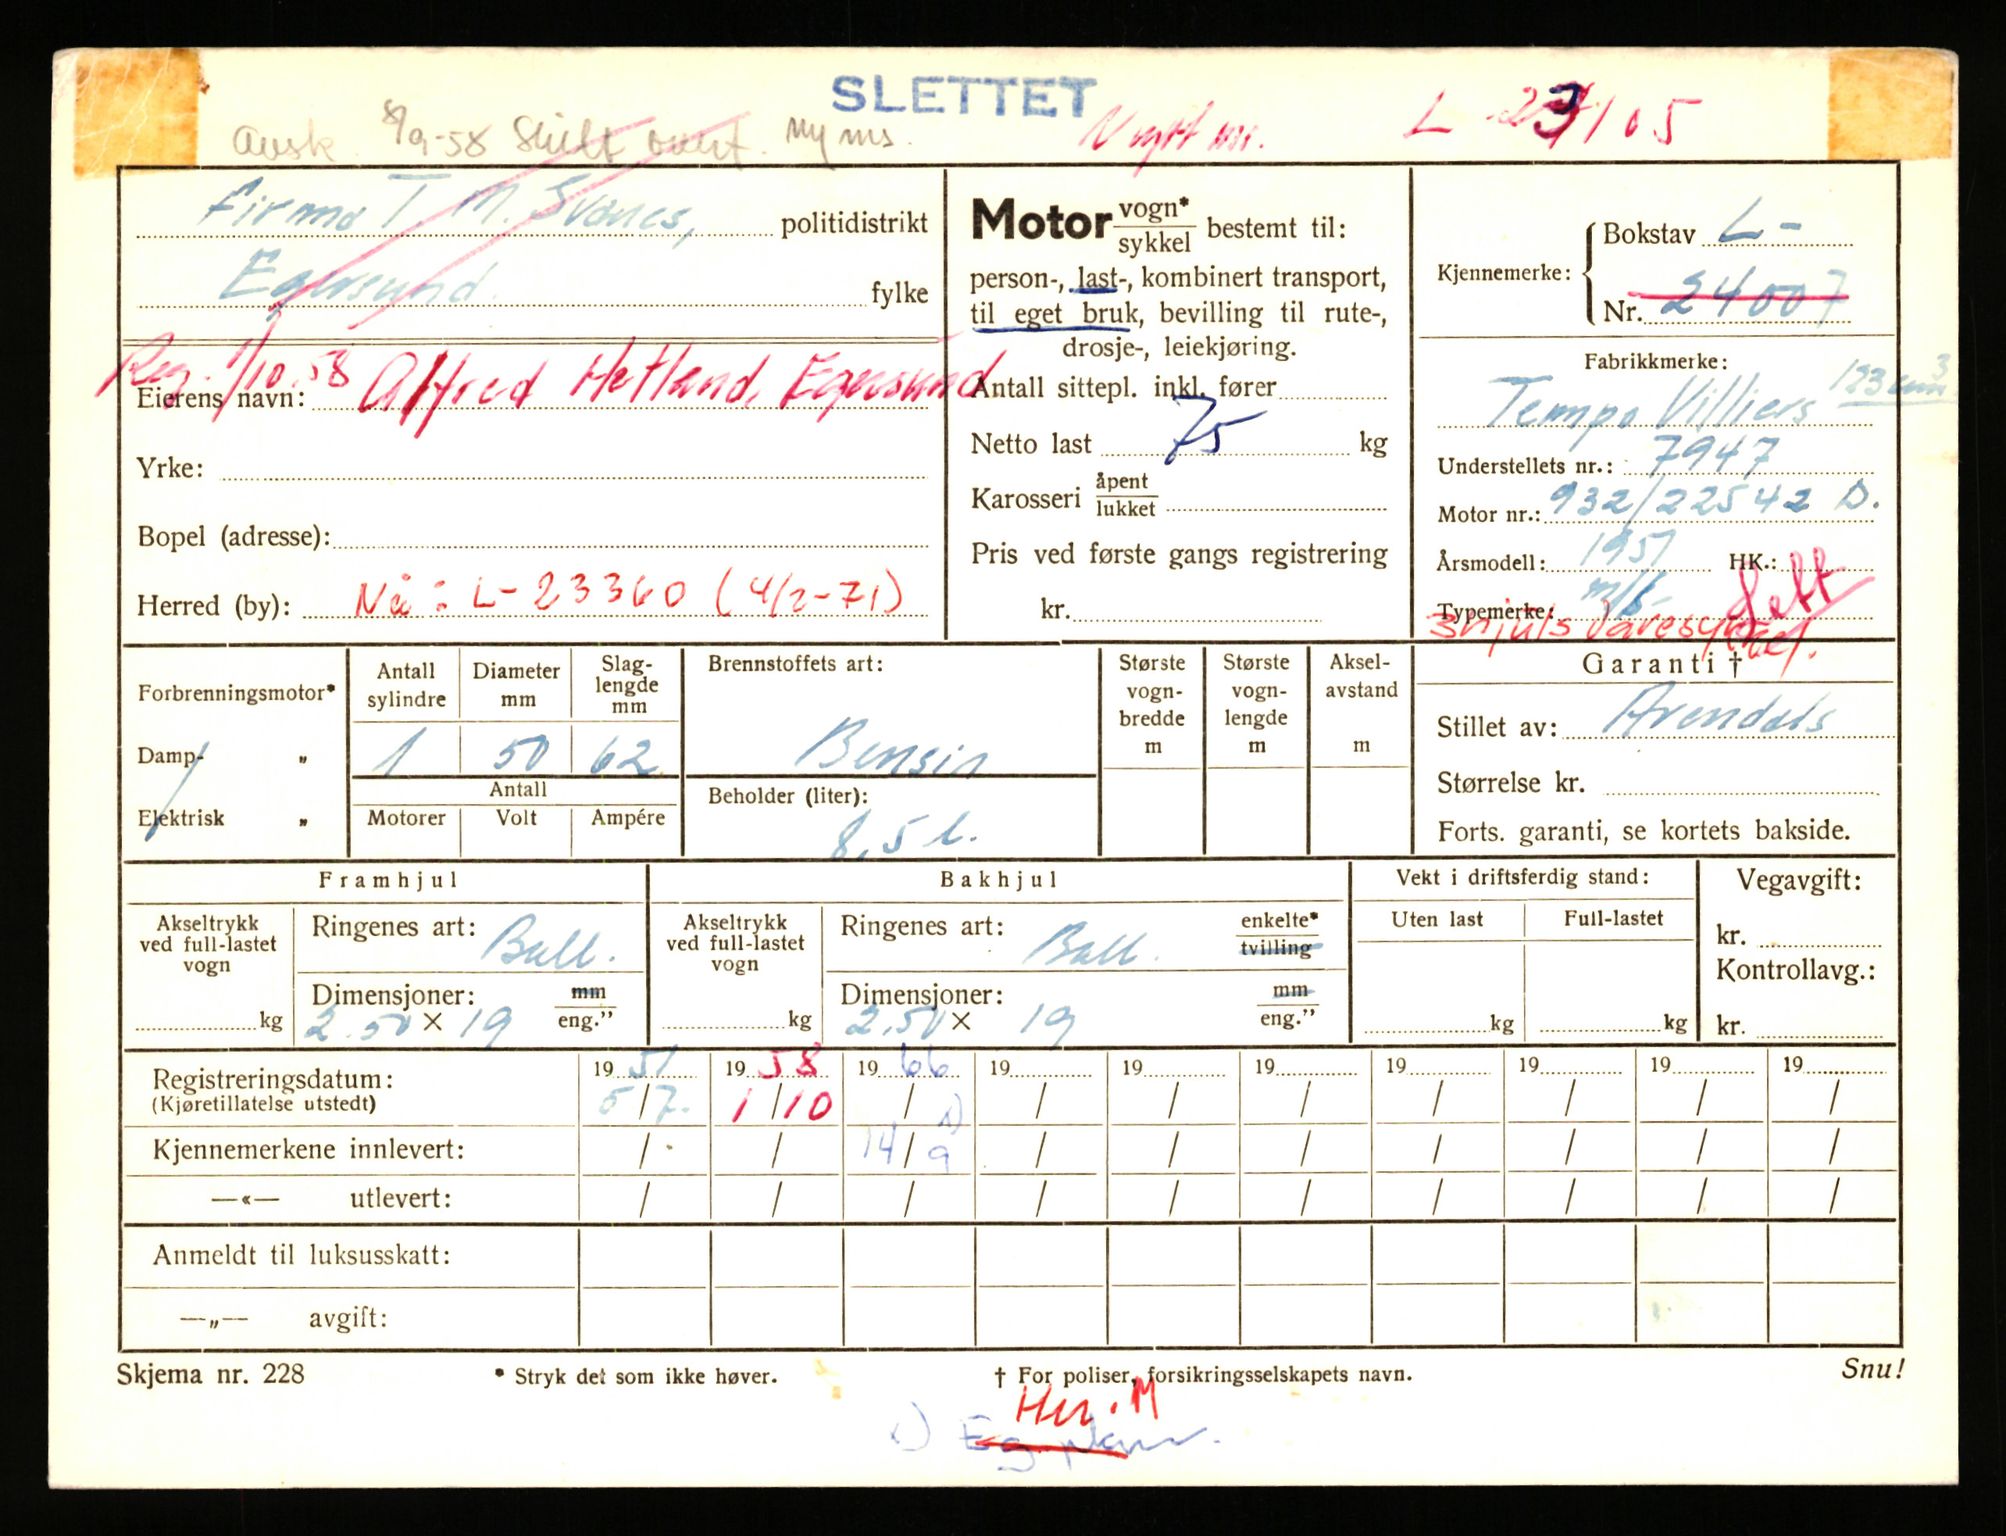 SLETTET
avsk. 8/9-58 Skilt overf. ny ms.
Nytt nr. L - 23105
firma T. M. Svanes, politidistrikt
Egersund. fylke
Reg. 1/10.58
Eierens navn: Alfred Hetland, Egersund
Yrke:
Bopel (adresse):
Herred (by): Nå: L-23360 (4/2-71)
Motor vogn*/sykkel bestemt til:
person-, last-, kombinert transport,
til eget bruk, bevilling til rute-,
drosje-, leiekjøring.
Antall sittepl. inkl. fører
Netto last 75 kg
Karosseri åpent/lukket
Pris ved første gangs registrering
kr.
Kjennemerke: Bokstav L-
Nr. 24007
Fabrikkmerke:
Tempo Villiers 123 cm3
Understellets nr.: 7947
Motor nr.: 932/22542 D.
Årsmodell: 1951 HK.:
Typemerke: m/s- Lett
3hjuls varesykkel.
Forbrenningsmotor*
Damp- „
Elektrisk „
Antall sylindre
Diameter mm
Slag-lengde mm
1 50 62
Antall
Motorer Volt Ampére
Brennstoffets art:
Bensin
Beholder (liter):
8,5 l.
Største vogn-bredde m
Største vogn-lengde m
Aksel-avstand m
Garanti †
Stillet av: Arendals
Størrelse kr.
Forts. garanti, se kortets bakside.
Framhjul
Akseltrykk ved full-lastet vogn
kg
Ringenes art: Ball.
Dimensjoner: mm/eng.”
2.50 × 19
Bakhjul
Akseltrykk ved full-lastet vogn
kg
Ringenes art: Ball. enkelte*/tvilling
Dimensjoner: mm/eng.”
2.50 × 19
Vekt i driftsferdig stand:
Uten last Full-lastet
kg kg
Vegavgift:
kr.
Kontrollavg.:
kr.
Registreringsdatum: 1951 1958 1966 19 19 19 19 19 19 19
(Kjøretillatelse utstedt) 5/7. 1/10 / / / / / / / /
Kjennemerkene innlevert: / / 14/9 1) / / / / / / /
—«— utlevert: / / / / / / / / / /
Anmeldt til luksusskatt:
—„— avgift:
Skjema nr. 228 * Stryk det som ikke høver. † For poliser, forsikringsselskapets navn. Snu!
Her. M
1) Eg.